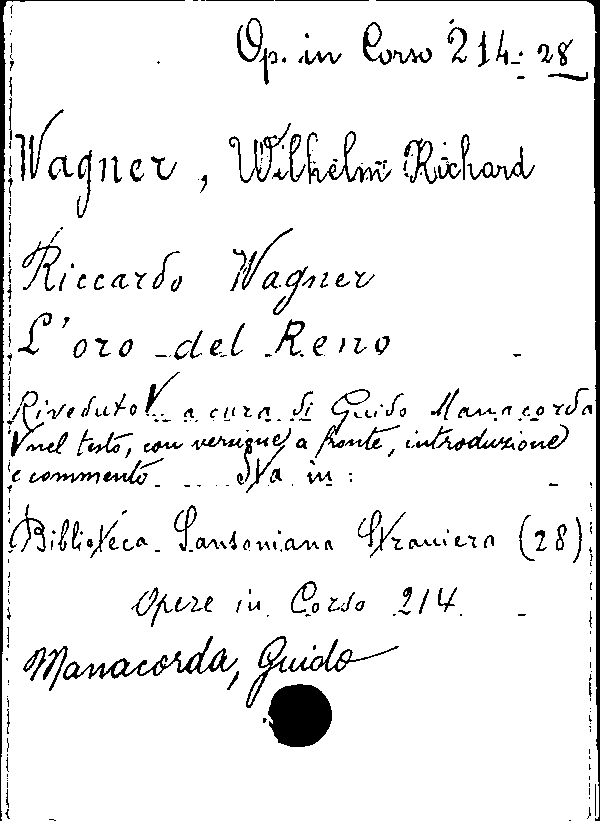 Op. in Corso 214: 28
Wagner, Wilhelm Richard
Riccardo Wagner
L'oro del Reno
Riveduto V a cura di Guido Manacorda
V nel testo, con versione a fronte, introduzione
e commento. Sta in:
Biblioteca Sansoniana Straniera (28)
Opere in Corso 214
Manacorda, Guido